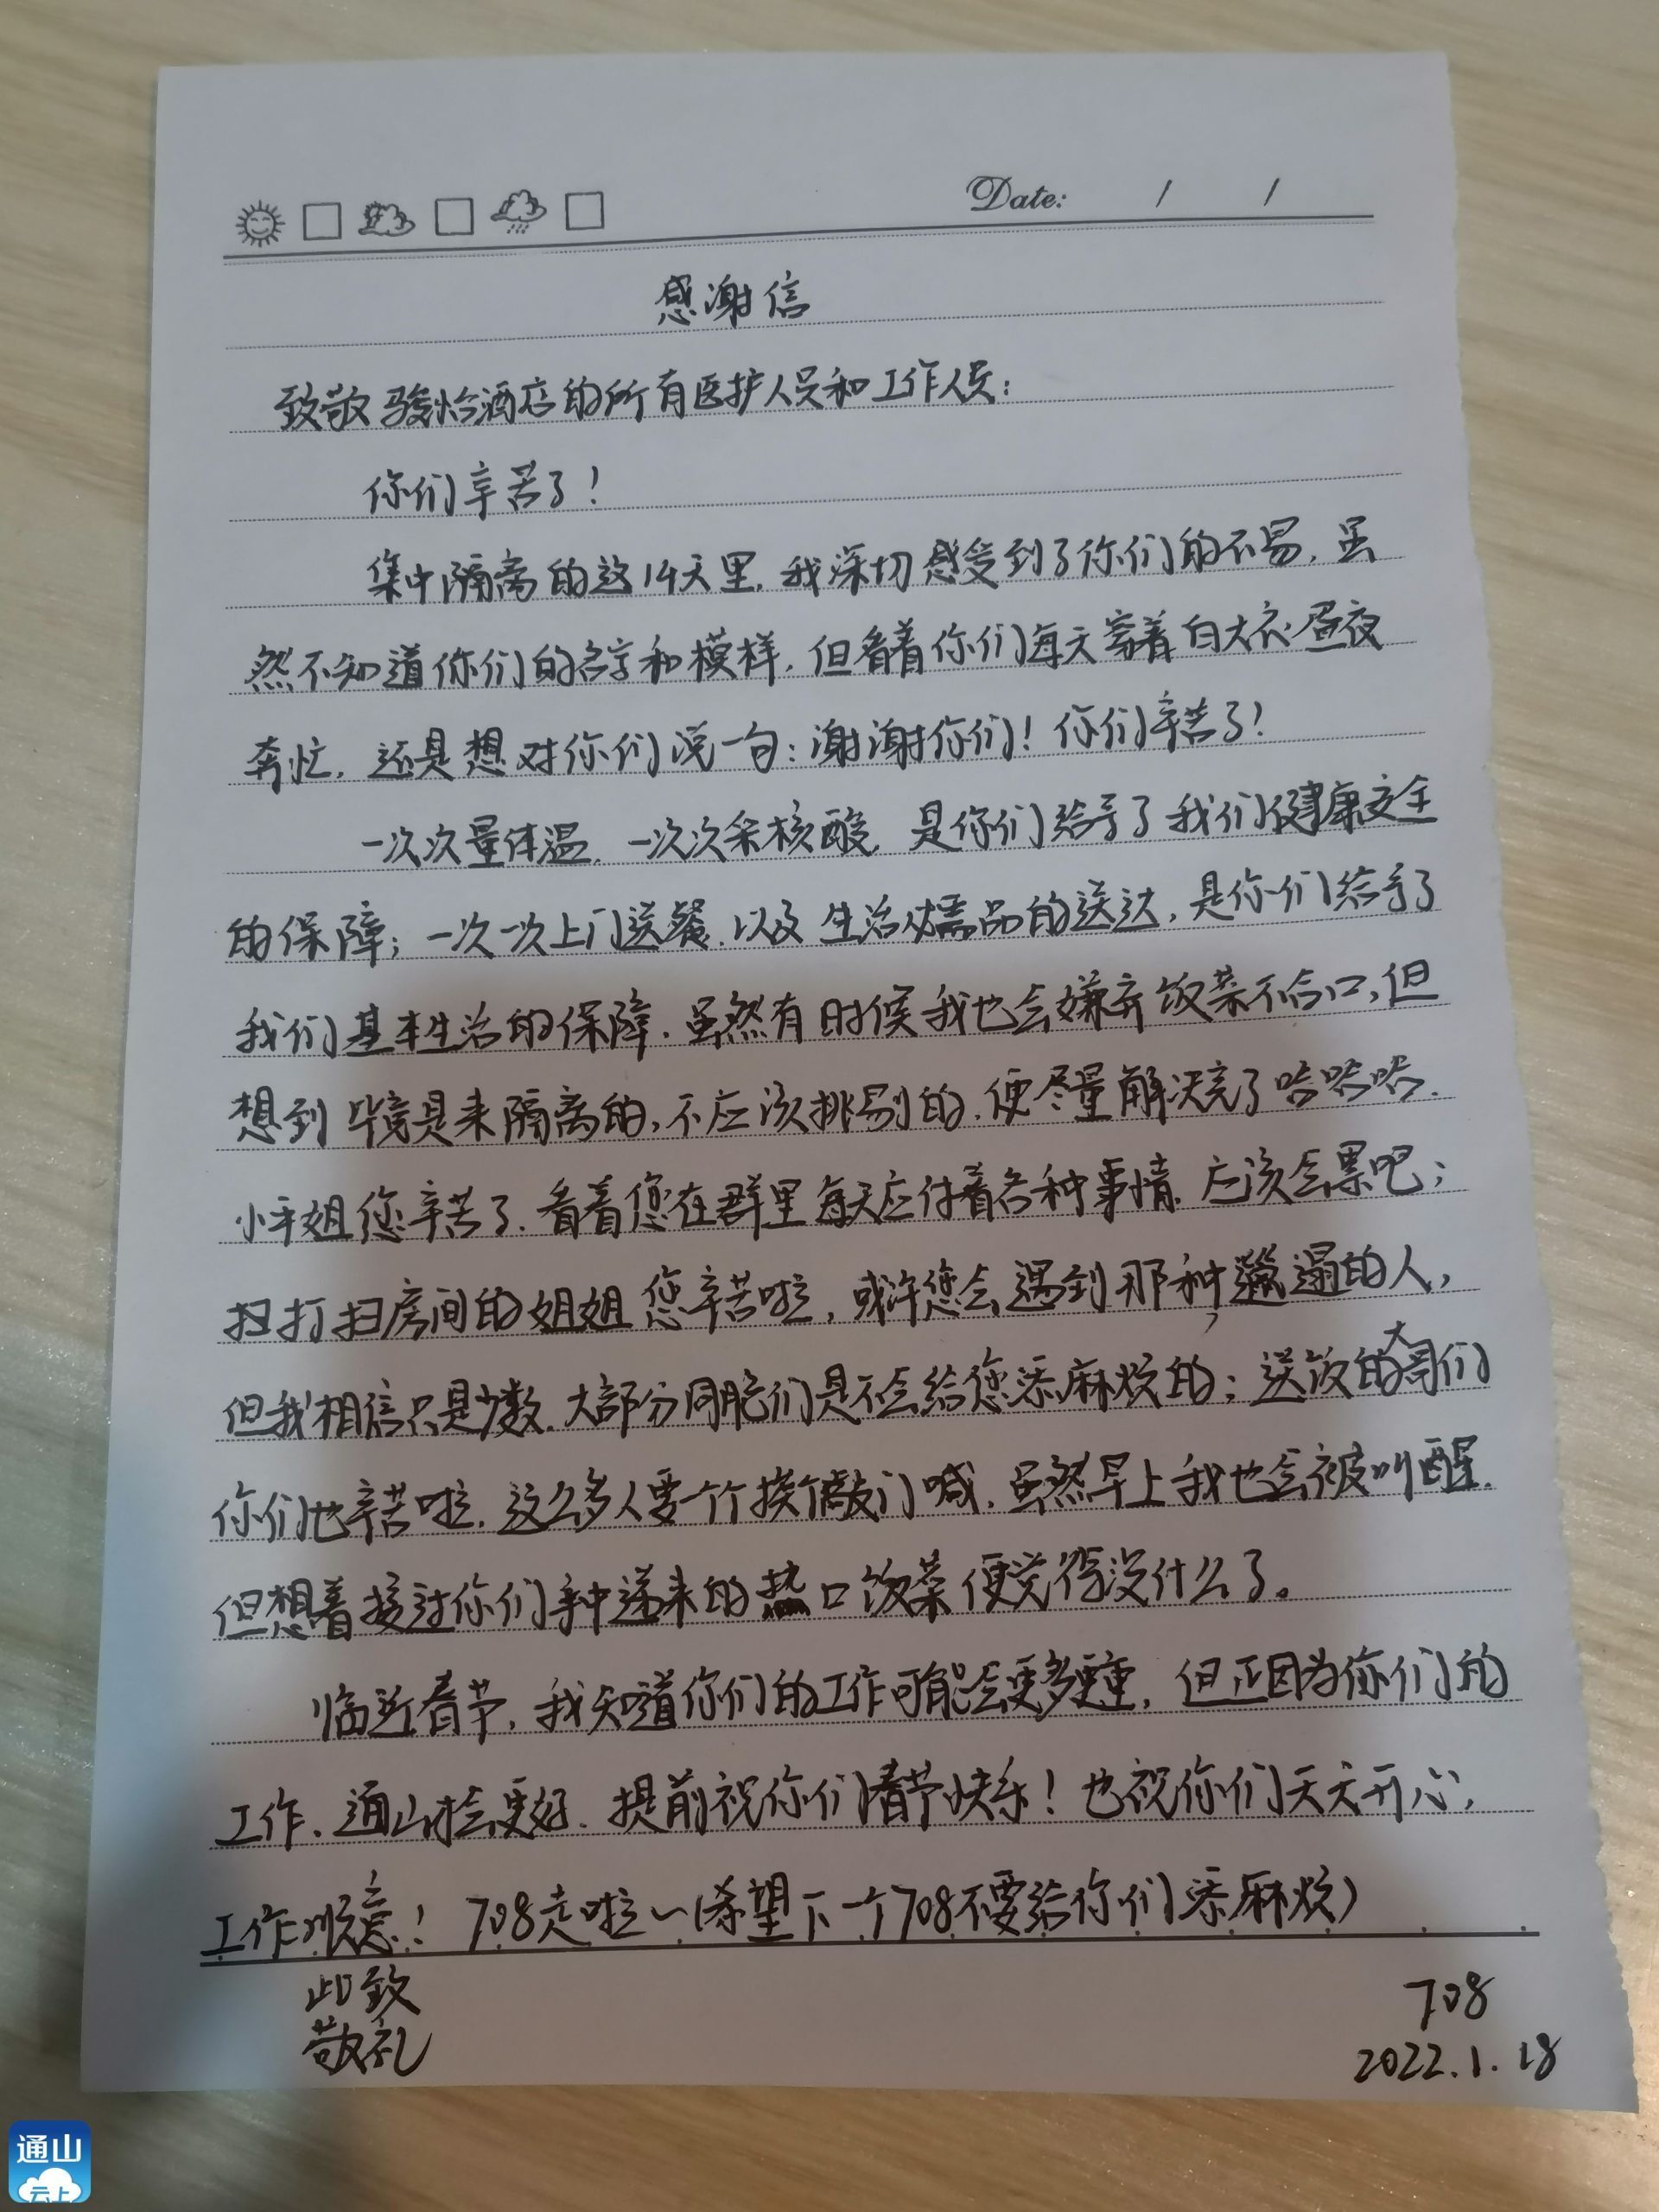 Date: / /
感谢信
致敬骏怡酒店的所有医护人员和工作人员：
你们辛苦了！
集中隔离的这14天里，我深切感受到了你们的不易，虽
然不知道你们的名字和模样，但看着你们每天穿着白大衣昼夜
奔忙，还是想对你们说一句：谢谢你们！你们辛苦了！
一次次量体温，一次次采核酸，是你们给予了我们健康安全
的保障；一次一次上门送餐，以及生活必需品的送达，是你们给予了
我们基本生活的保障。虽然有时候我也会嫌弃饭菜不合口，但
想到毕竟是来隔离的，不应该挑剔的，便尽量解决完了哈哈哈。
小平姐您辛苦了，看着您在群里每天应付着各种事情，应该会累吧；
扫打扫房间的姐姐您辛苦啦，或许您会遇到那种邋遢的人，
但我相信只是少数，大部分同胞们是不会给您添麻烦的；送饭的大哥们
你们也辛苦啦，这么多人要一个个挨个敲门喊，虽然早上我也会被叫醒，
但想着接过你们手中递来的热口饭菜便觉得没什么了。
临近春节，我知道你们的工作可能会更多更重，但正因为你们的
工作，通山才会更好，提前祝你们春节快乐！也祝你们天天开心，
工作顺意！708走啦～（希望下一个708不要给你们添麻烦）
此致
敬礼
708
2022.1.18
通山
云上